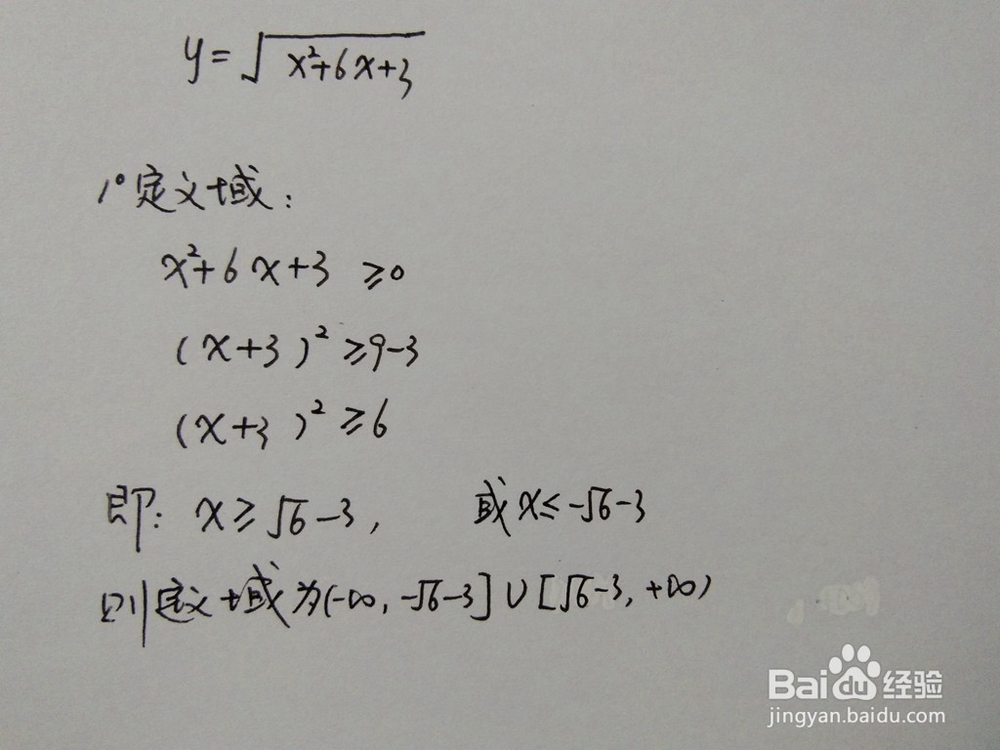 y=√x²+6x+3
1°定义域：
x²+6x+3 ≥0
(x+3)²≥9-3
(x+3)²≥6
即：x≥√6-3， 或x≤-√6-3
则定义域为(-∞,-√6-3]∪[√6-3,+∞)
Baidu经验
jingyan.baidu.com